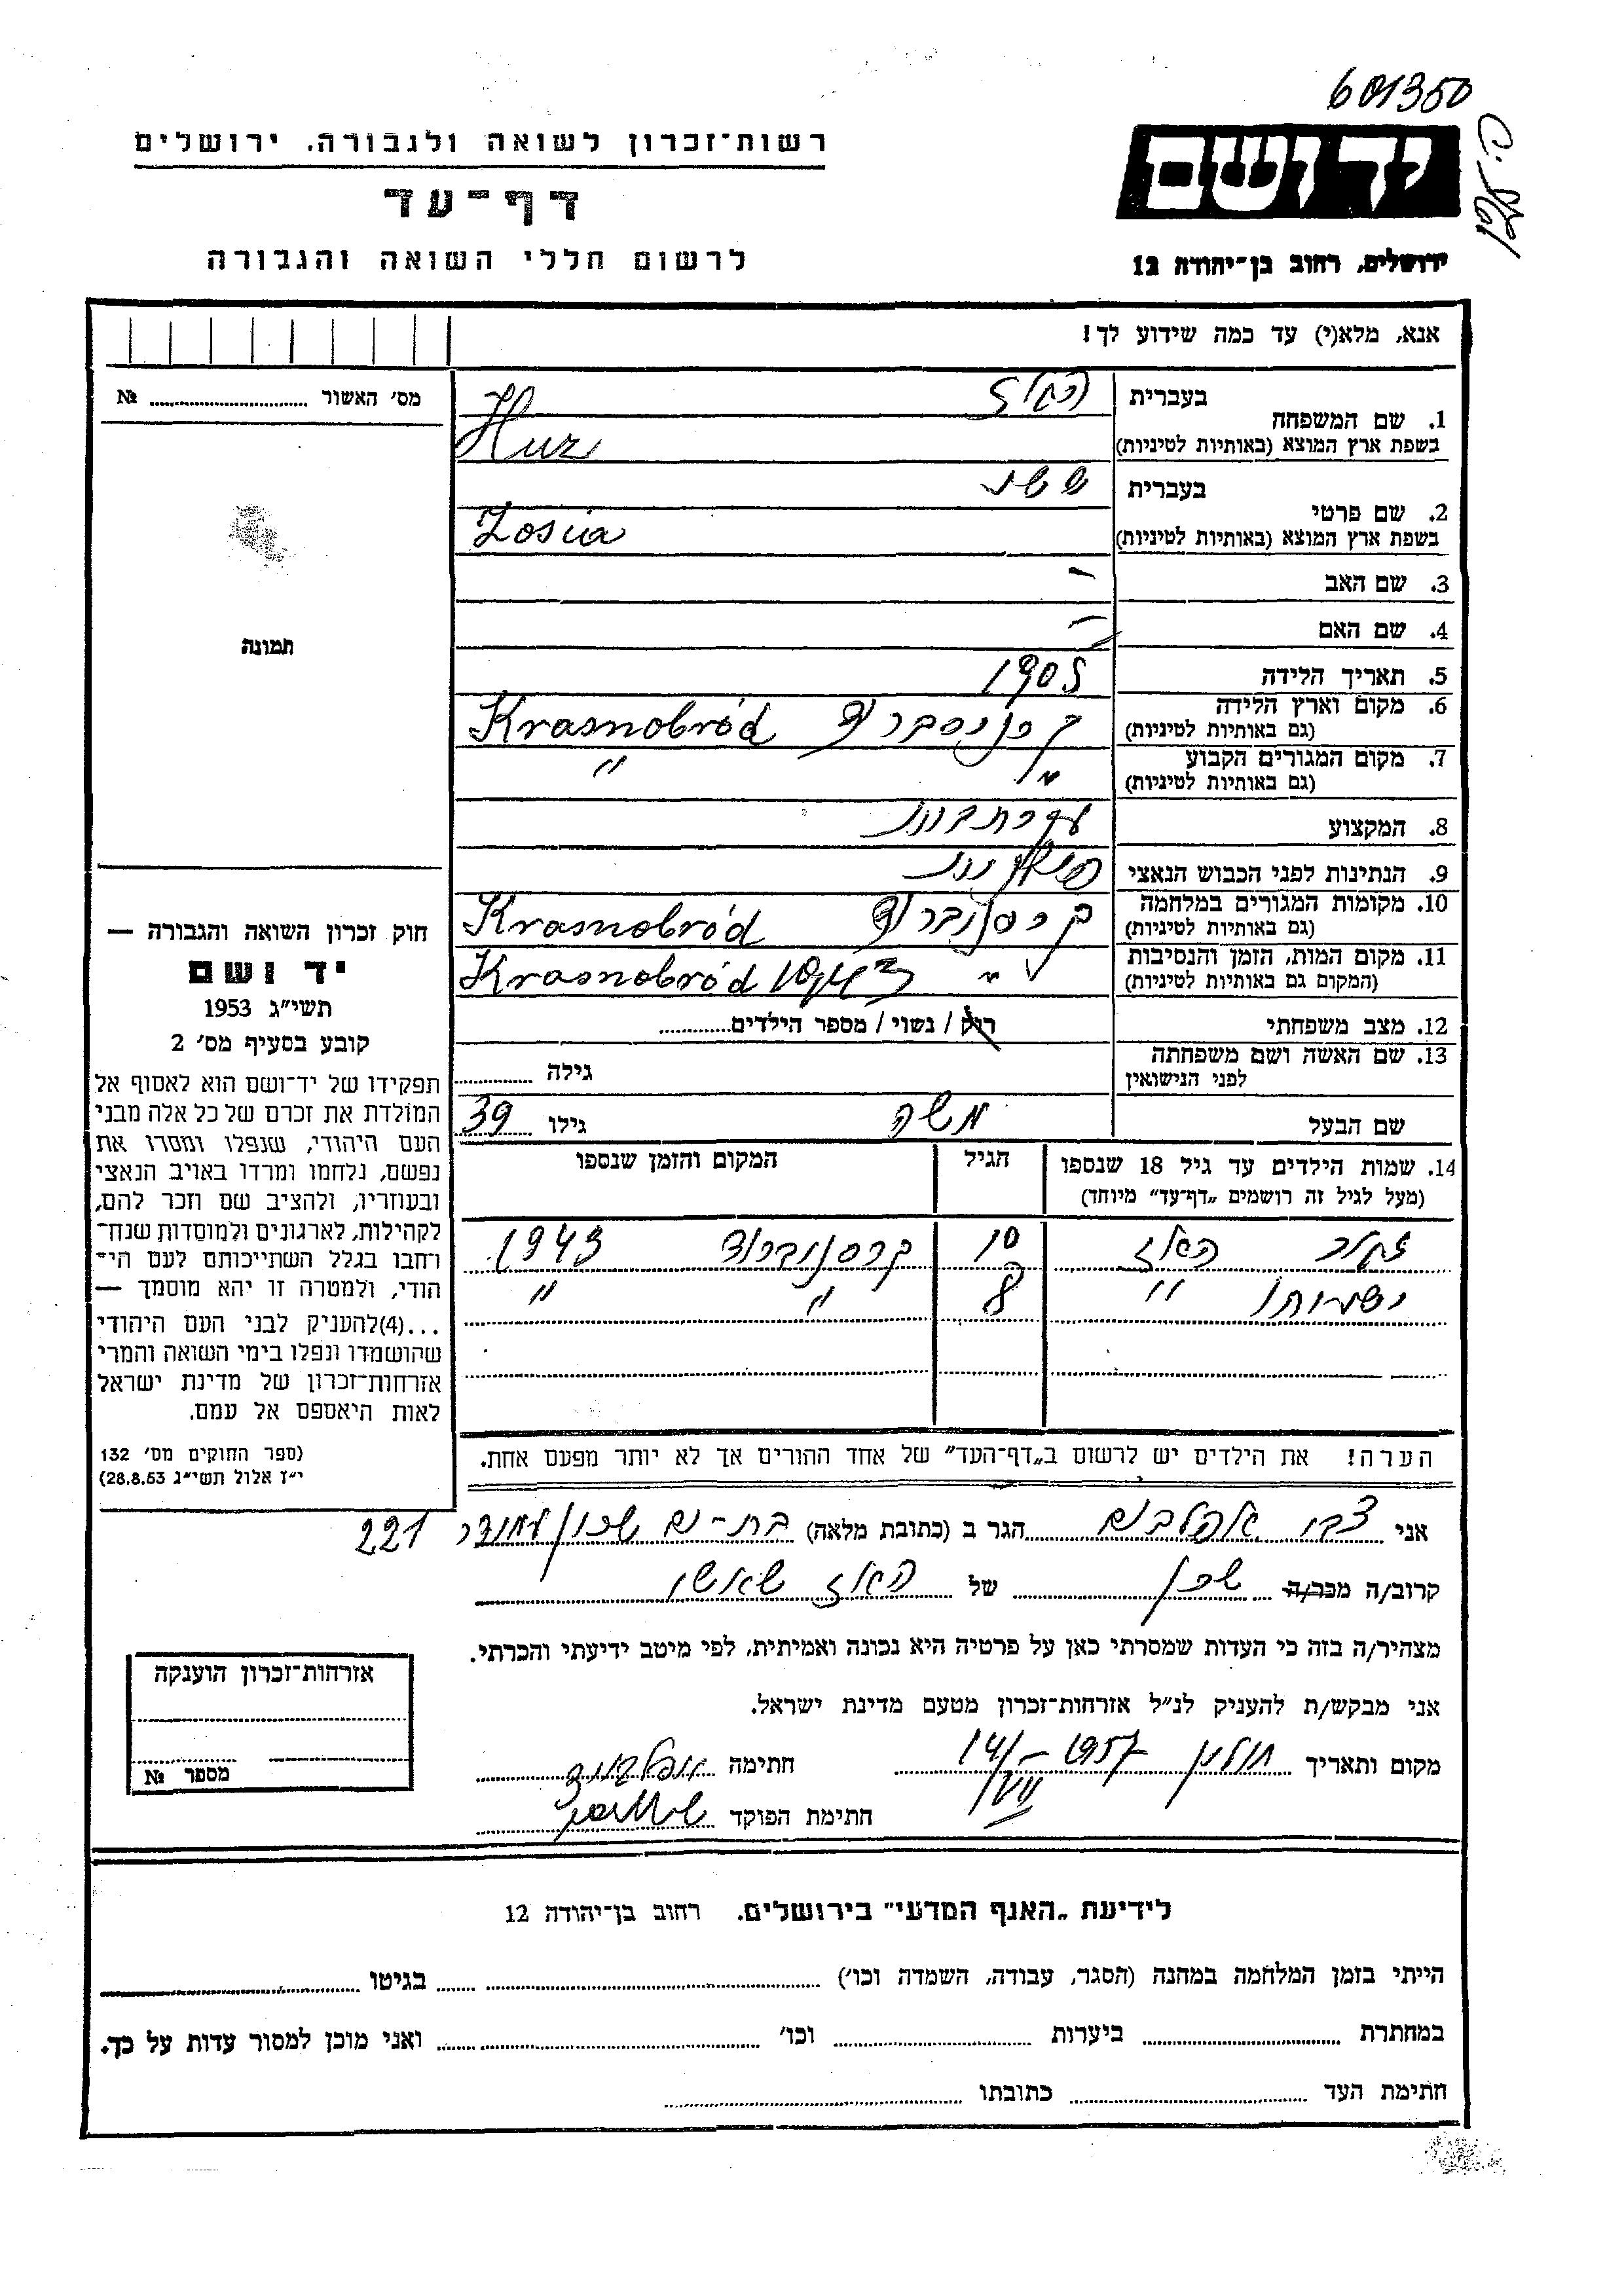 601350
רשות־זכרון לשואה ולגבורה. ירושלים
דף־עד
לרשום חללי השואה והגבורה
יד ושם
ירושלים, רחוב בן־יהודה 12
אנא, מלא(י) עד כמה שידוע לך!
מס׳ האשור № 
תמונה
חוק זכרון השואה והגבורה —
יד ושם
תשי״ג 1953
קובע בסעיף מס׳ 2
תפקידו של יד־ושם הוא לאסוף אל
המולדת את זכרם של כל אלה מבני
העם היהודי, שנפלו ומסרו את
נפשם, נלחמו ומרדו באויב הנאצי
ובעוזריו, ולהציב שם וזכר להם,
לקהילות, לארגונים ולמוסדות שנח־
רחבו בגלל השתייכותם לעם הי־
הודי, ולמטרה זו יהא מוסמך —
...(4)להעניק לבני העם היהודי
שהושמדו ונפלו בימי השואה והמרי
אזרחות־זכרון של מדינת ישראל
לאות היאספם אל עמם.
(ספר החוקים מס׳ 132
י״ז אלול תשי״ג 28.8.53)
1. שם המשפחה בעברית
בשפת ארץ המוצא (באותיות לטיניות) Huz
2. שם פרטי בעברית
בשפת ארץ המוצא (באותיות לטיניות) Zosia
3. שם האב –
4. שם האם –
5. תאריך הלידה 1905
6. מקום וארץ הלידה
(גם באותיות לטיניות) Krasnobród
7. מקום המגורים הקבוע
(גם באותיות לטיניות) " "
8. המקצוע עקרת בית
9. הנתינות לפני הכבוש הנאצי פולנית
10. מקומות המגורים במלחמה
(גם באותיות לטיניות) קרסנוברוד Krasnobród
11. מקום המות, הזמן והנסיבות
(המקום גם באותיות לטיניות) " Krasnobród 1943
12. מצב משפחתי רוק / נשוי / מספר הילדים
13. שם האשה ושם משפחתה
לפני הנישואין גילה
שם הבעל משה גילו 39
14. שמות הילדים עד גיל 18 שנספו הגיל המקום והזמן שנספו
(מעל לגיל זה רושמים „דף־עד״ מיוחד)
האלז 10 קרסנוברוד 1943
" 8 " "
הערה! את הילדים יש לרשום ב„דף־העד״ של אחד ההורים אך לא יותר מפעם אחת.
אני צבי אפלבוים הגר ב (כתובת מלאה) בת-ים שכון עמידר 221
קרוב/ה מכר/ה שכן של האלז שאשי
מצהיר/ה בזה כי העדות שמסרתי כאן על פרטיה היא נכונה ואמיתית, לפי מיטב ידיעתי והכרתי.
אני מבקש/ת להעניק לנ״ל אזרחות־זכרון מטעם מדינת ישראל.
מקום ותאריך חולון 14/VII – 1957 חתימה
חתימת הפוקד
אזרחות־זכרון הוענקה
מספר №
לידיעת „האגף המדעי״ בירושלים. רחוב בן־יהודה 12
הייתי בזמן המלחמה במחנה (הסגר, עבודה, השמדה וכו׳) בגיטו
במחתרת ביערות וכו׳ ואני מוכן למסור עדות על כך.
חתימת העד כתובתו